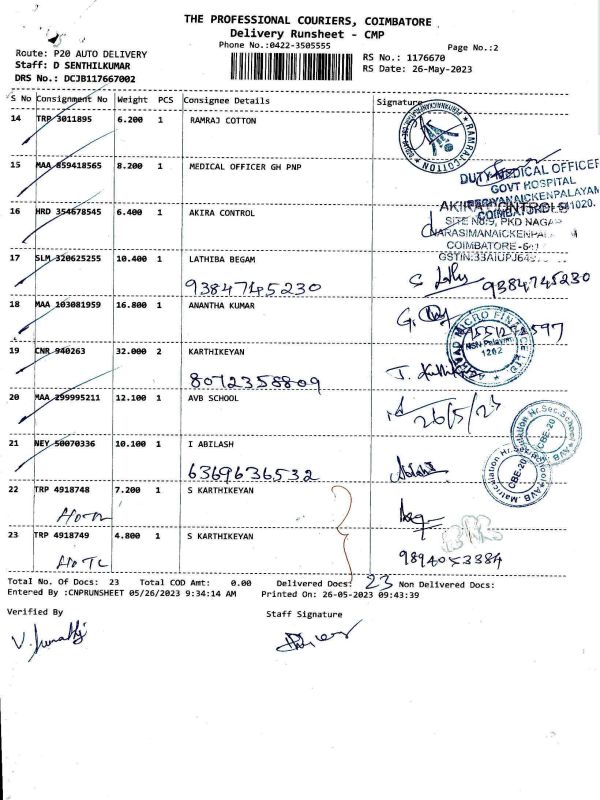 THE PROFESSIONAL COURIERS, COIMBATORE
Delivery Runsheet - CMP
Phone No.:0422-3505555
Page No.:2
Route: P20 AUTO DELIVERY
Staff: D SENTHILKUMAR
DRS No.: DCJB117667002
RS No.: 1176670
RS Date: 26-May-2023
S No Consignment No Weight PCS Consignee Details Signature
14 TRP 3011895 6.200 1 RAMRAJ COTTON
RAMRAJ COTTON
15 MAA 859418565 8.200 1 MEDICAL OFFICER GH PNP
DUTY MEDICAL OFFICER
GOVT HOSPITAL
PERIYANAICKENPALAYAM
COIMBATORE 641020.
16 HRD 354678545 6.400 1 AKIRA CONTROL
AKIRA CONTROLS
SITE NO:9, PKD NAGAR
NARASIMANAICKENPAL
COIMBATORE-641
17 SLM 320625255 10.400 1 LATHIBA BEGAM
9384745230
9384745230
18 MAA 103081959 16.800 1 ANANTHA KUMAR
19 CNR 940263 32.000 2 KARTHIKEYAN
MICRO FINANCE LTD
NSN Palayam
1262
8072358809
20 MAA 299995211 12.100 1 AVB SCHOOL
26/5/23
AVB Matriculation Hr.Sec.School
CBE-20
AVB Matriculation Hr.Sec.School
CBE-20
21 NEY 50070336 10.100 1 I ABILASH
6369636532
22 TRP 4918748 7.200 1 S KARTHIKEYAN
23 TRP 4918749 4.800 1 S KARTHIKEYAN
9894053384
Total No. Of Docs: 23 Total COD Amt: 0.00 Delivered Docs: 23 Non Delivered Docs:
Entered By :CNPRUNSHEET 05/26/2023 9:34:14 AM Printed On: 26-05-2023 09:43:39
Verified By Staff Signature